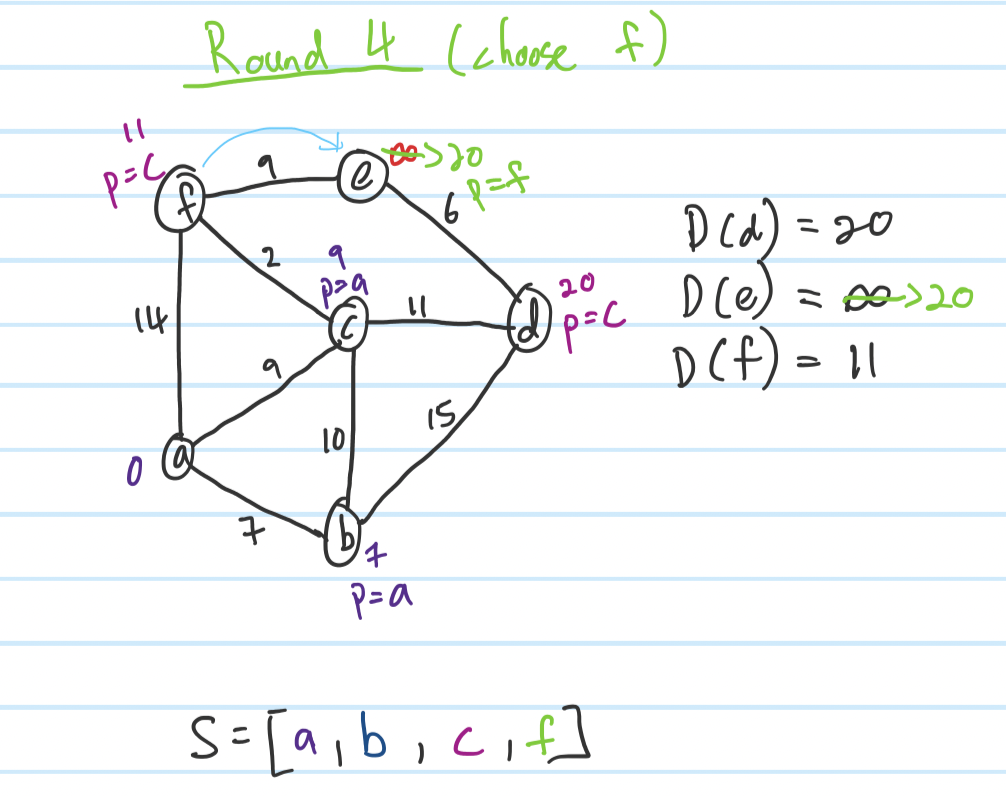 Round 4 (choose f)
11
p=c
f
9
e
∞->20
p=f
6
2
9
p=a
c
11
d
20
p=c
14
9
10
15
0
a
7
b
7
p=a
D(d) = 20
D(e) = ∞->20
D(f) = 11
S=[a, b, c, f]